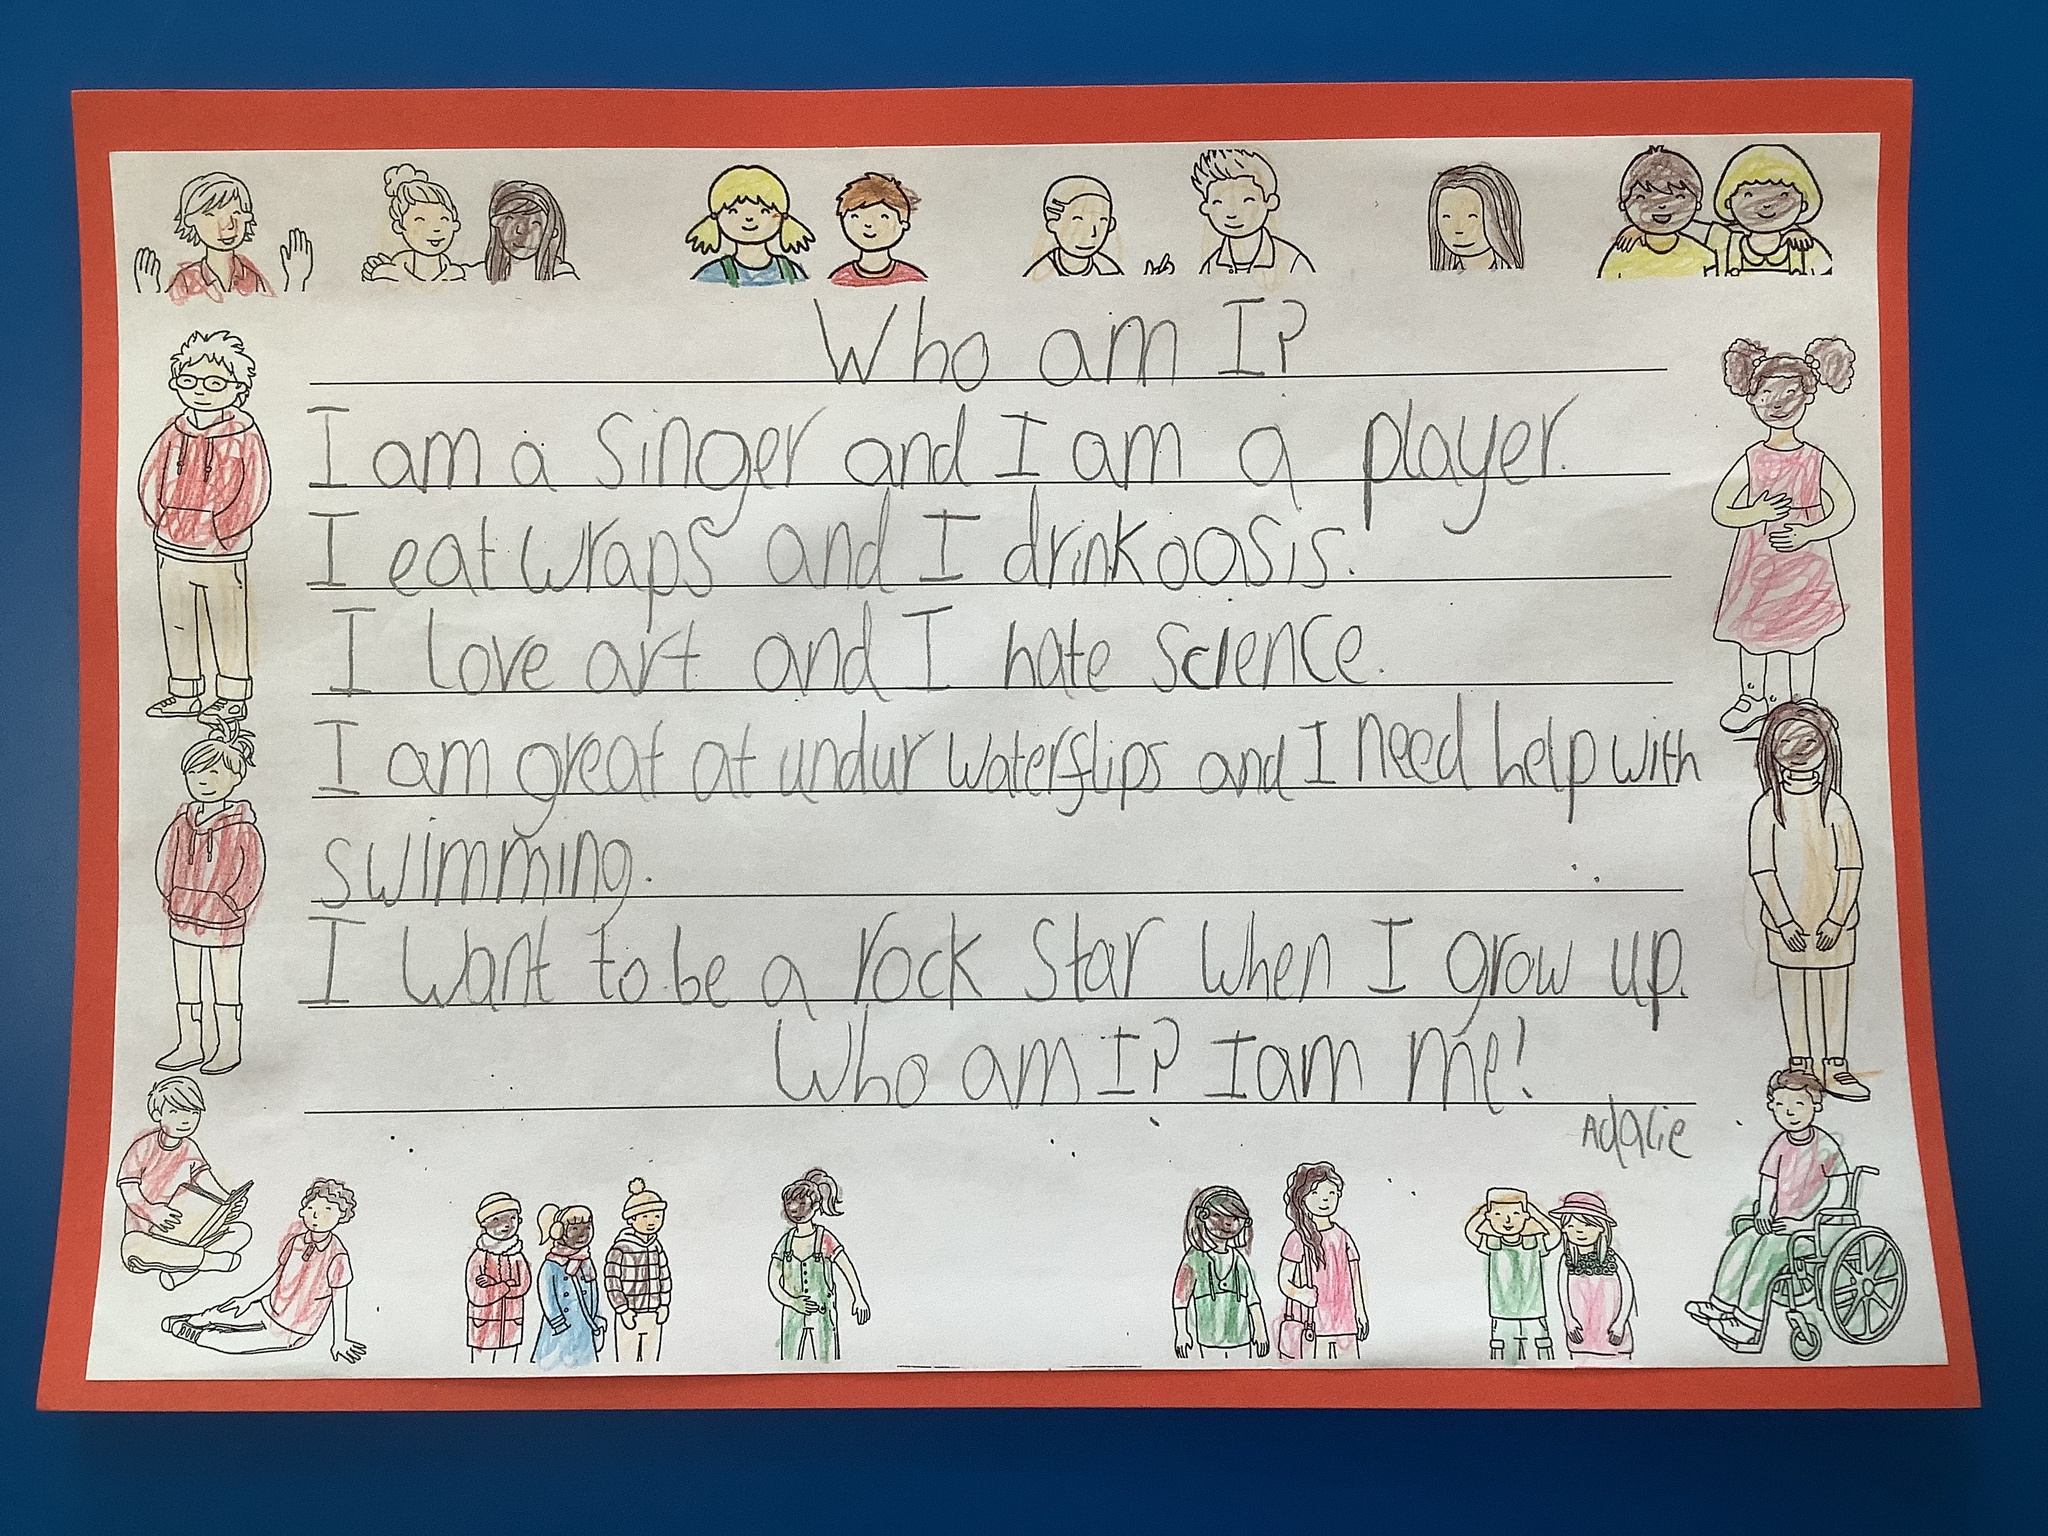 Who am I?
I am a singer and I am a player.
I eat wraps and I drink oasis.
I love art and I hate science.
I am great at undur waterflips and I need help with
swimming.
I want to be a rock star when I grow up.
Who am I? I am me!
Adalie